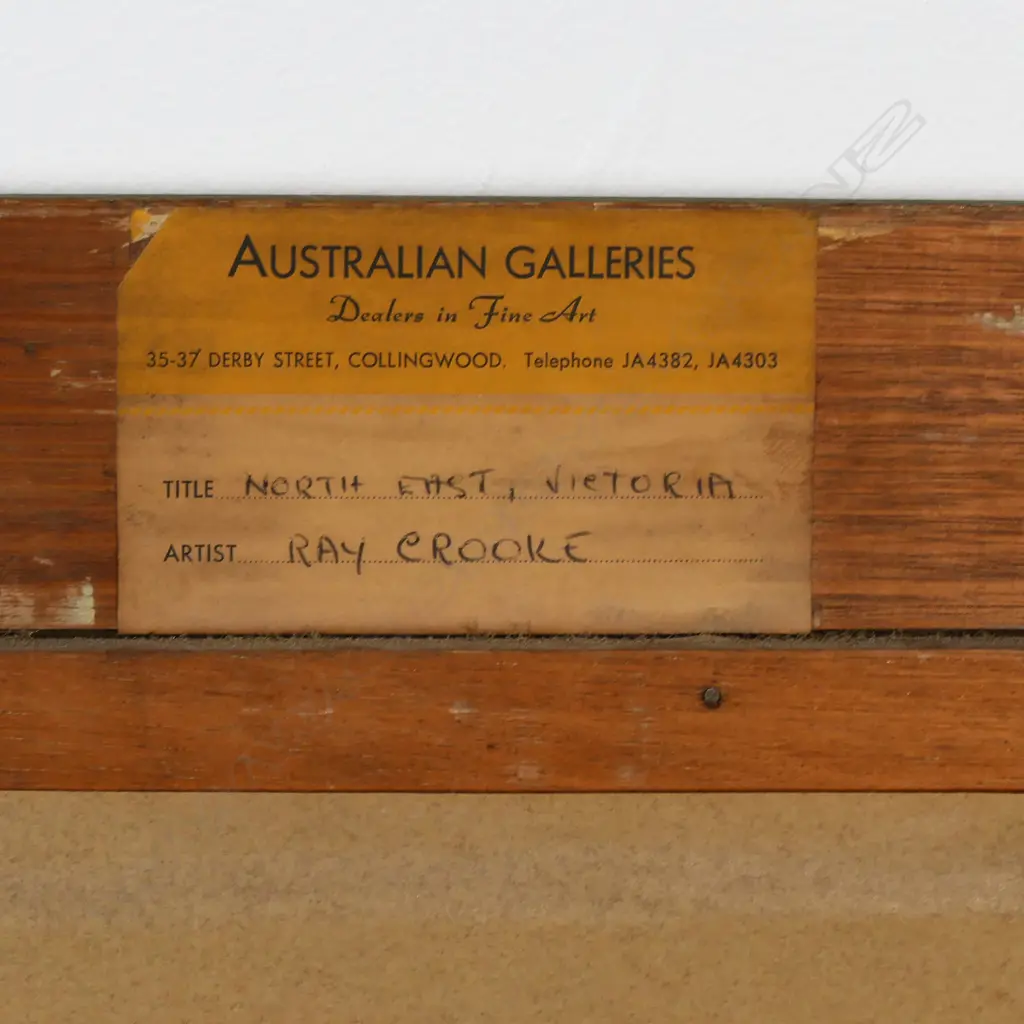 AUSTRALIAN GALLERIES
Dealers in Fine Art
35-37 DERBY STREET, COLLINGWOOD. Telephone JA4382, JA4303
TITLE NORTH EAST, VICTORIA
ARTIST RAY CROOKE